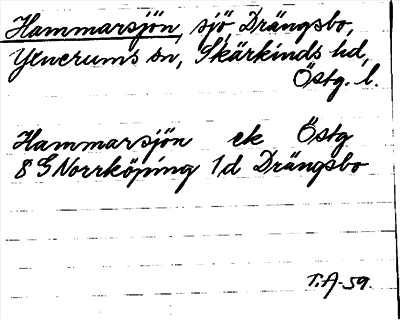 Hammarsjön, sjö, Drängsbo,
Yxnerums sn, Skärkinds hd,
Östg. l.
Hammarsjön ek Östg
8 G Norrköping 1d Drängsbo
T.A-59.